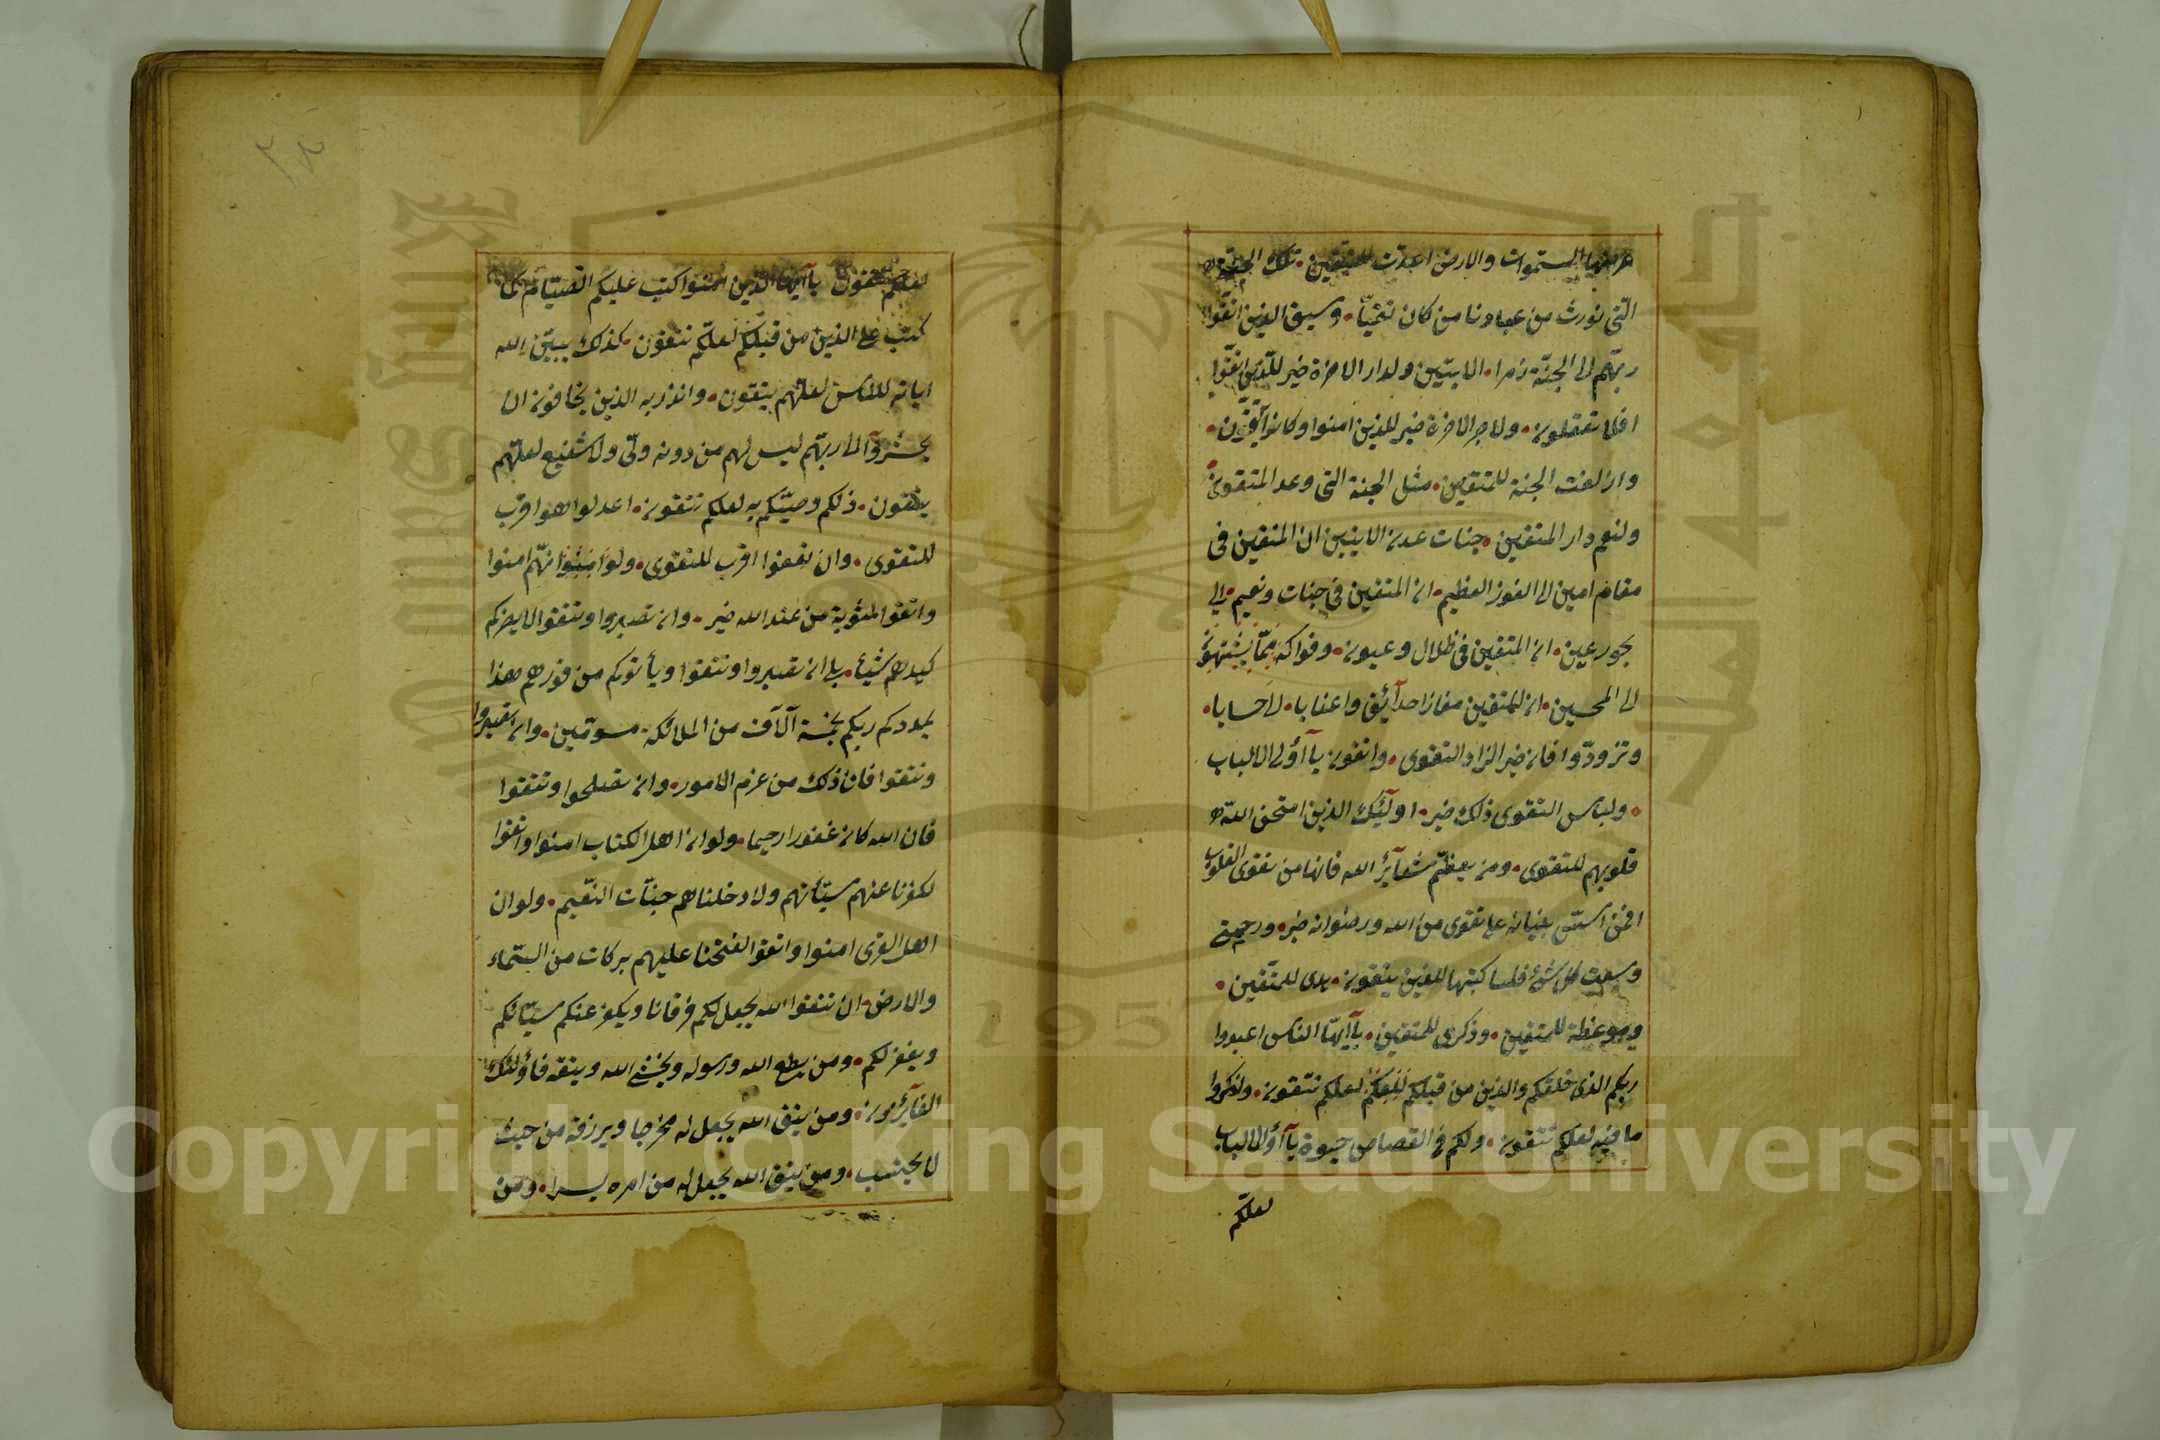 عرضها السموات والارض اعدت للمتقين • تلك الجنة
التي نورث من عبادنا من كان تقيّا • وسيق الذين اتقوا
ربهم الى الجنّة زمرا • الايتين ولدار الاخرة خير للذين اتقوا
افلا تعقلون • ولاجر الاخرة خير للذين امنوا وكانوا يتقون •
وازلفت الجنة للمتقين • مثل الجنة التي وعد المتقون •
ولنعم دار المتقين • جنات عدن الايتين ان المتقين في
مقام امين الى الفوز العظيم • ان المتقين في جنات ونعيم • الى
بحور عين • ان المتقين في ظلال وعيون • وفواكه مما يشتهون
الى المحسنين • ان للمتقين مفازا حدآئق واعنابا • الى حسابا •
وتزودّوا فان خير الزاد التقوى • واتقون يآ اولى الالباب
• ولباس التقوى ذلك خير • اولئك الذين امتحن الله
قلوبهم للتقوى • ومن يعظّم شعآئر الله فانها من تقوى القلوب
افمن اسّس بنيانه على تقوى من الله ورضوان خير • ورحمتي
وسعت كل شئ فساكتبها للذين يتقون • هدى للمتّقين •
وموعظة للمتقين • وذكرى للمتقين • يآ ايّها الناس اعبدوا
ربكم الذى خلقكم والذين من قبلكم لعلكم تتقون • واذكروا
ما فيه لعلكم تتقون • ولكم في القصاص حيوة يآ اولى الالباب
لعلكم
٣٤
لعلكم تتقون • يآ ايّها الذين امنوا كتب عليكم الصّيام كما
كتب على الذين من قبلكم لعلكم تتقون • كذلك يبيّن الله
اياته للناس لعلّهم يتقون • وانذر به الذين يخافون ان
يحشروآ الى ربّهم ليس لهم من دونه وليّ ولا شفيع لعلّهم
يتقون • ذلكم وصّيكم به لعلكم تتقون • اعدلوا هو اقرب
للتقوى • وان تعفوا اقرب للتقوى • ولو انّهم امنوا
واتقوا لمثوبة من عند الله خير • وان تصبروا وتتقوا لا يضركم
كيدهم شيئا • بلى ان تصبروا وتتقوا ويأتوكم من فورهم هذا
يمددكم ربكم بخمسة آلآف من الملائكة مسوّمين • وان تصبروا
وتتقوا فان ذلك من عزم الامور • وان تصلحوا وتتقوا
فان الله كان غفورا رحيما • ولو ان اهل الكتاب امنوا واتقوا
لكفرنا عنهم سيّئاتهم ولادخلناهم جنّات النّعيم • ولو ان
اهل القرى امنوا واتقوا لفتحنا عليهم بركات من السّماء
والارض • ان تتقوا الله يجعل لكم فرقانا ويكفر عنكم سيّئاتكم
ويغفر لكم • ومن يطع الله ورسوله ويخش الله ويتقه فاولئك
الفآئزون • ومن يتق الله يجعل له مخرجا ويرزقه من حيث
لا يحتسب • ومن يتق الله يجعل له من امره يسرا • ومن
1957
Copyright © King Saud University